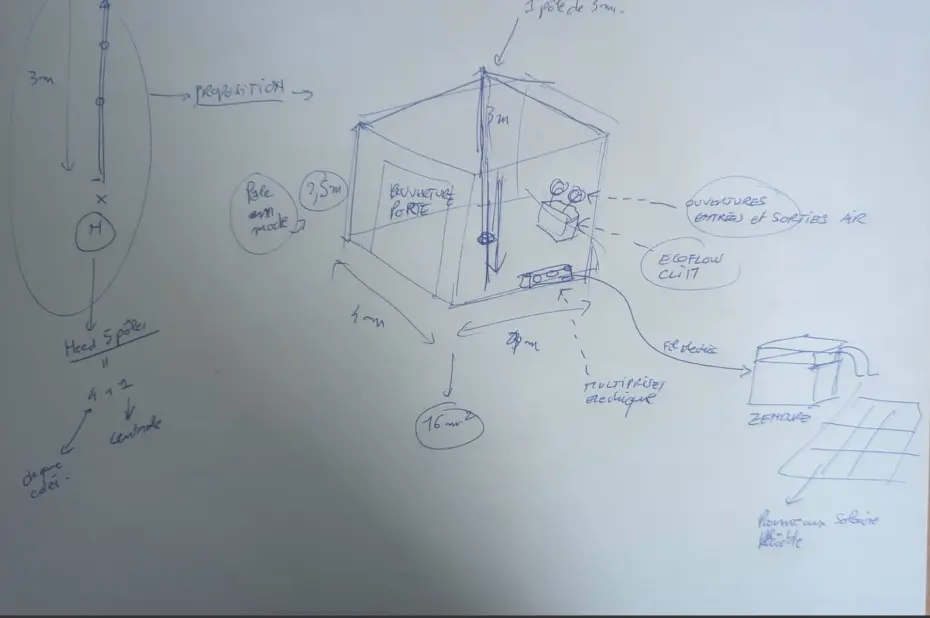 1 pôle de 3m.
3m
PROPOSITION
3m
Pole
en
mode
2,5m
OUVERTURE
PORTE
OUVERTURES
ENTRÉES et SORTIES AIR
ECOFLOW
x
M
4m
m
Need 5 pôles
=
4 + 1
centrale
chaque
côté.
16 m²
MULTIPRISES
électrique
Fil électrique
ZENDURE
Panneaux Solaire